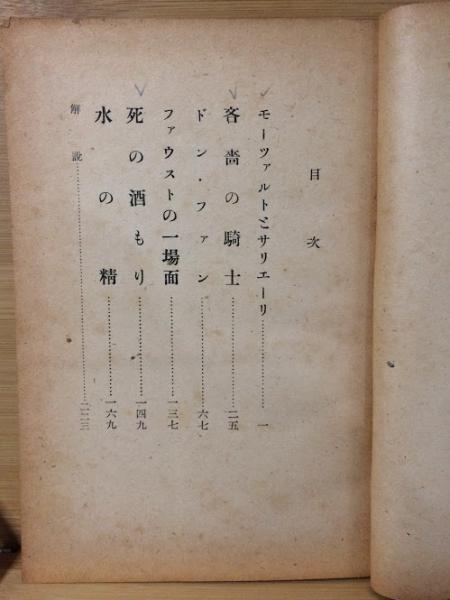 目次
モーツァルトとサリエーリ……………一
吝嗇の騎士……………二五
ドン・ファン……………六七
ファウストの一場面……………一三七
死の酒もり……………一四九
水の精……………一六九
解説……………二二三